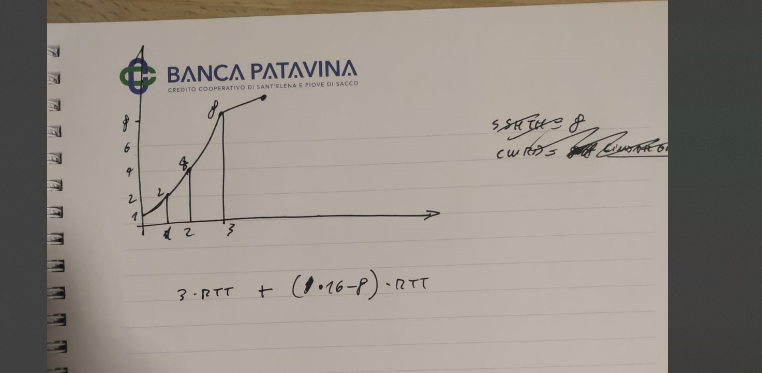 BANCA PATAVINA
CREDITO COOPERATIVO DI SANT'ELENA E PIOVE DI SACCO
8
8
6
4
4
2
2
1
1 2 3
SSHTH = 8
CWND =
3·RTT + (1·16-8)·RTT